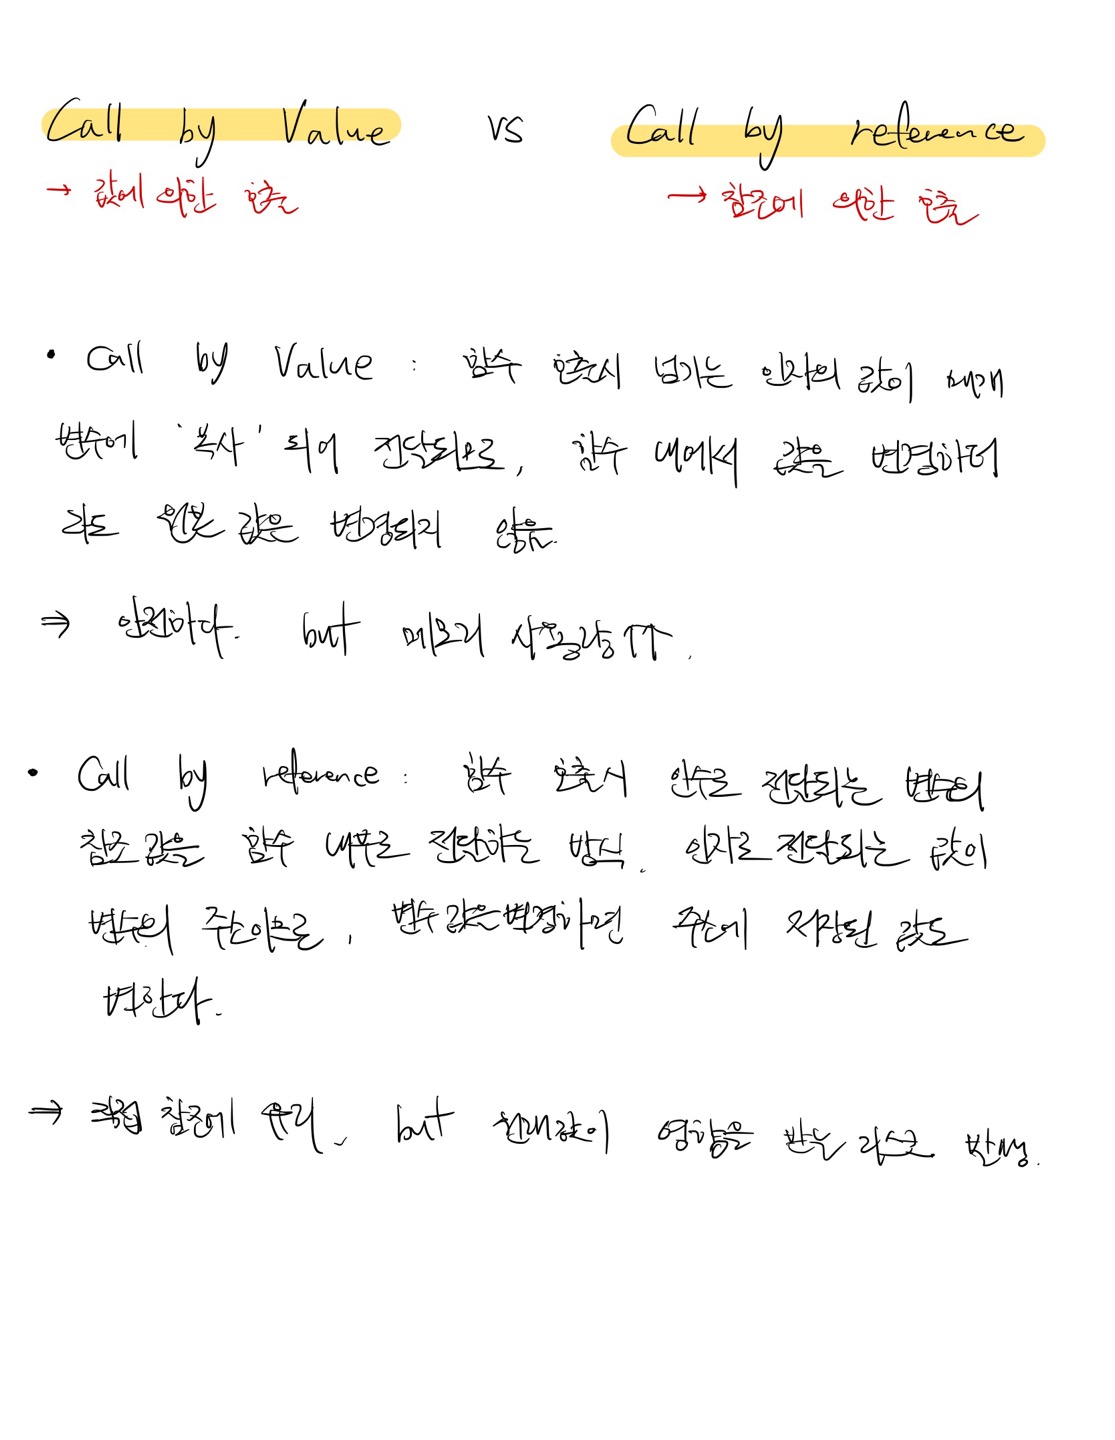 Call by Value vs Call by reference
→ 값에 의한 호출 → 참조에 의한 호출
• Call by Value : 함수 호출시 넘기는 인자의 값이 매개
변수에 '복사' 되어 전달되므로, 함수 내에서 값을 변경하더
라도 원본 값은 변경되지 않음.
⇒ 안전하다. but 메모리 사용량↑↑.
• Call by reference : 함수 호출시 인수로 전달되는 변수의
참조 값을 함수 내부로 전달하는 방식. 인자로 전달되는 값이
변수의 주소이므로, 변수 값은 변경하면 주소에 저장된 값도
변한다.
⇒ 직접 참조에 유리, but 원래값이 영향을 받는 리스크 발생.